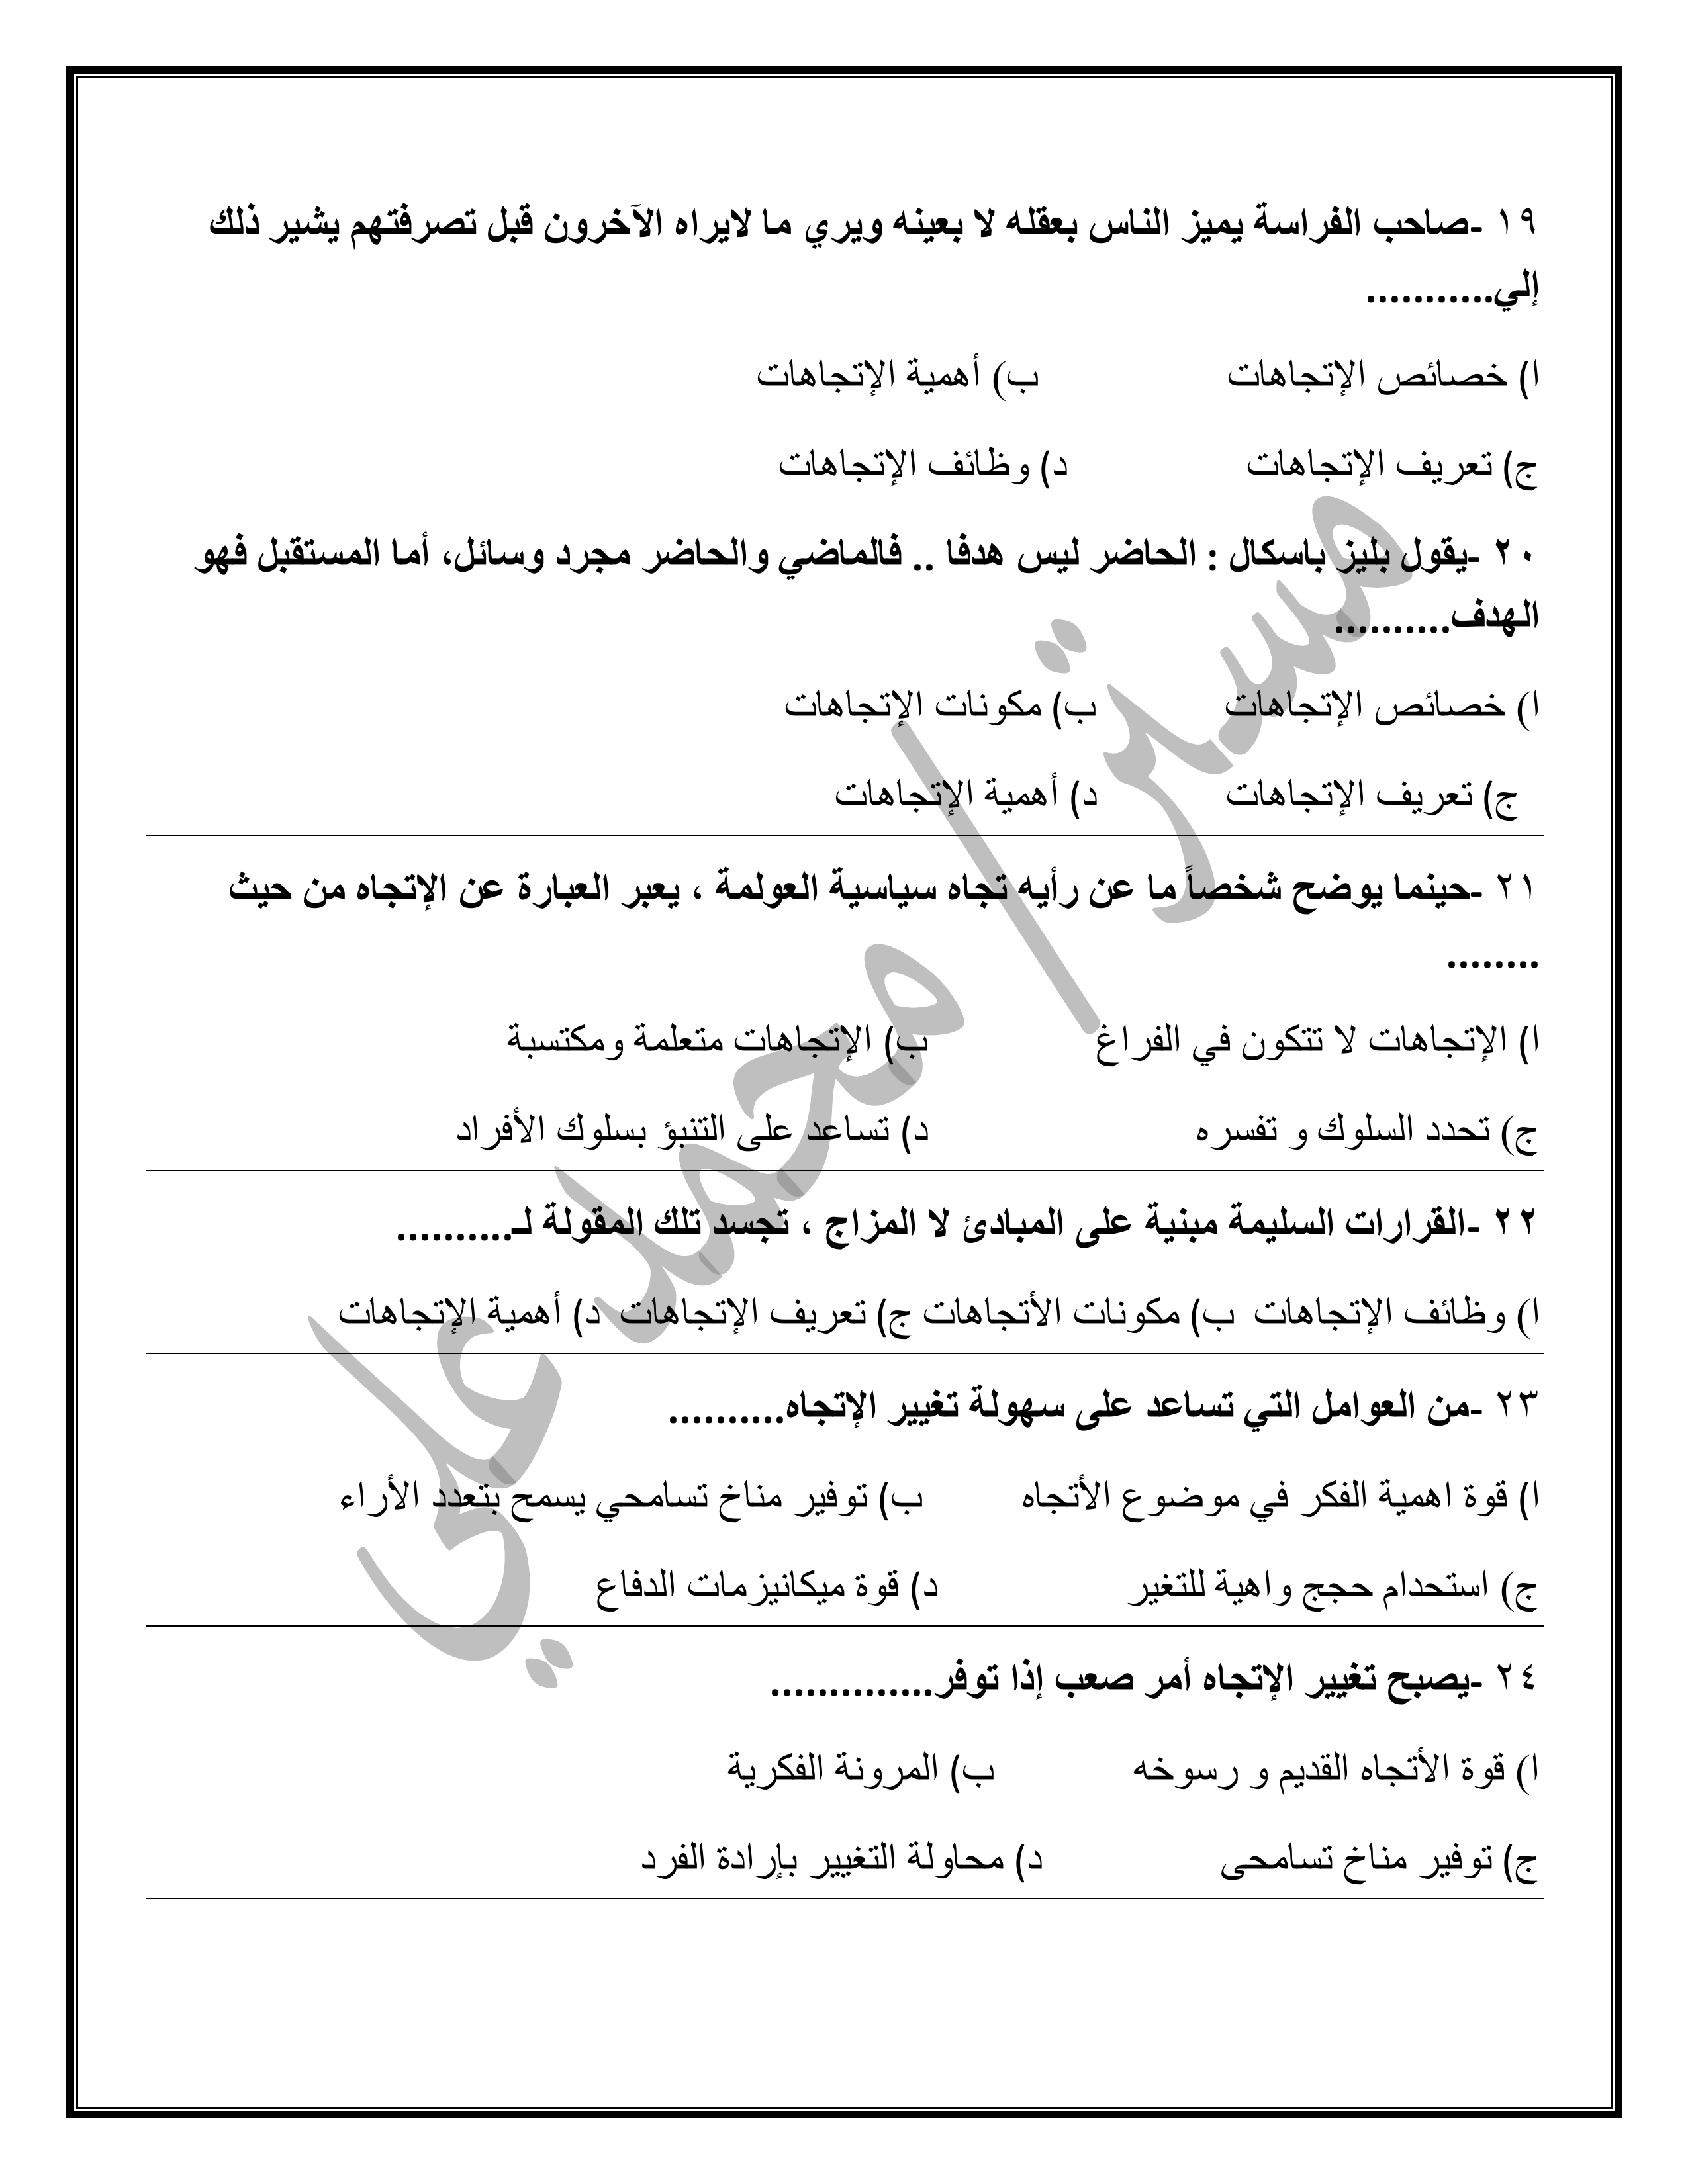 ١٩ -صاحب الفراسة يميز الناس بعقله لا بعينه ويري ما لايراه الآخرون قبل تصرفتهم يشير ذلك
إلي...........
ا) خصائص الإتجاهات ب) أهمية الإتجاهات
ج) تعريف الإتجاهات د) وظائف الإتجاهات
٢٠ -يقول بليز باسكال : الحاضر ليس هدفا .. فالماضي والحاضر مجرد وسائل، أما المستقبل فهو
الهدف..........
ا) خصائص الإتجاهات ب) مكونات الإتجاهات
ج) تعريف الإتجاهات د) أهمية الإتجاهات
٢١ -حينما يوضح شخصاً ما عن رأيه تجاه سياسية العولمة ، يعبر العبارة عن الإتجاه من حيث
........
ا) الإتجاهات لا تتكون في الفراغ ب) الإتجاهات متعلمة ومكتسبة
ج) تحدد السلوك و تفسره د) تساعد على التنبؤ بسلوك الأفراد
٢٢ -القرارات السليمة مبنية على المبادئ لا المزاج ، تجسد تلك المقولة لـ..........
ا) وظائف الإتجاهات ب) مكونات الأتجاهات ج) تعريف الإتجاهات د) أهمية الإتجاهات
٢٣ -من العوامل التي تساعد على سهولة تغيير الإتجاه..........
ا) قوة اهمية الفكر في موضوع الأتجاه ب) توفير مناخ تسامحي يسمح بتعدد الأراء
ج) استحدام حجج واهية للتغير د) قوة ميكانيزمات الدفاع
٢٤ -يصبح تغيير الإتجاه أمر صعب إذا توفر..............
ا) قوة الأتجاه القديم و رسوخه ب) المرونة الفكرية
ج) توفير مناخ تسامحى د) محاولة التغيير بإرادة الفرد
مستر/ محمد علي